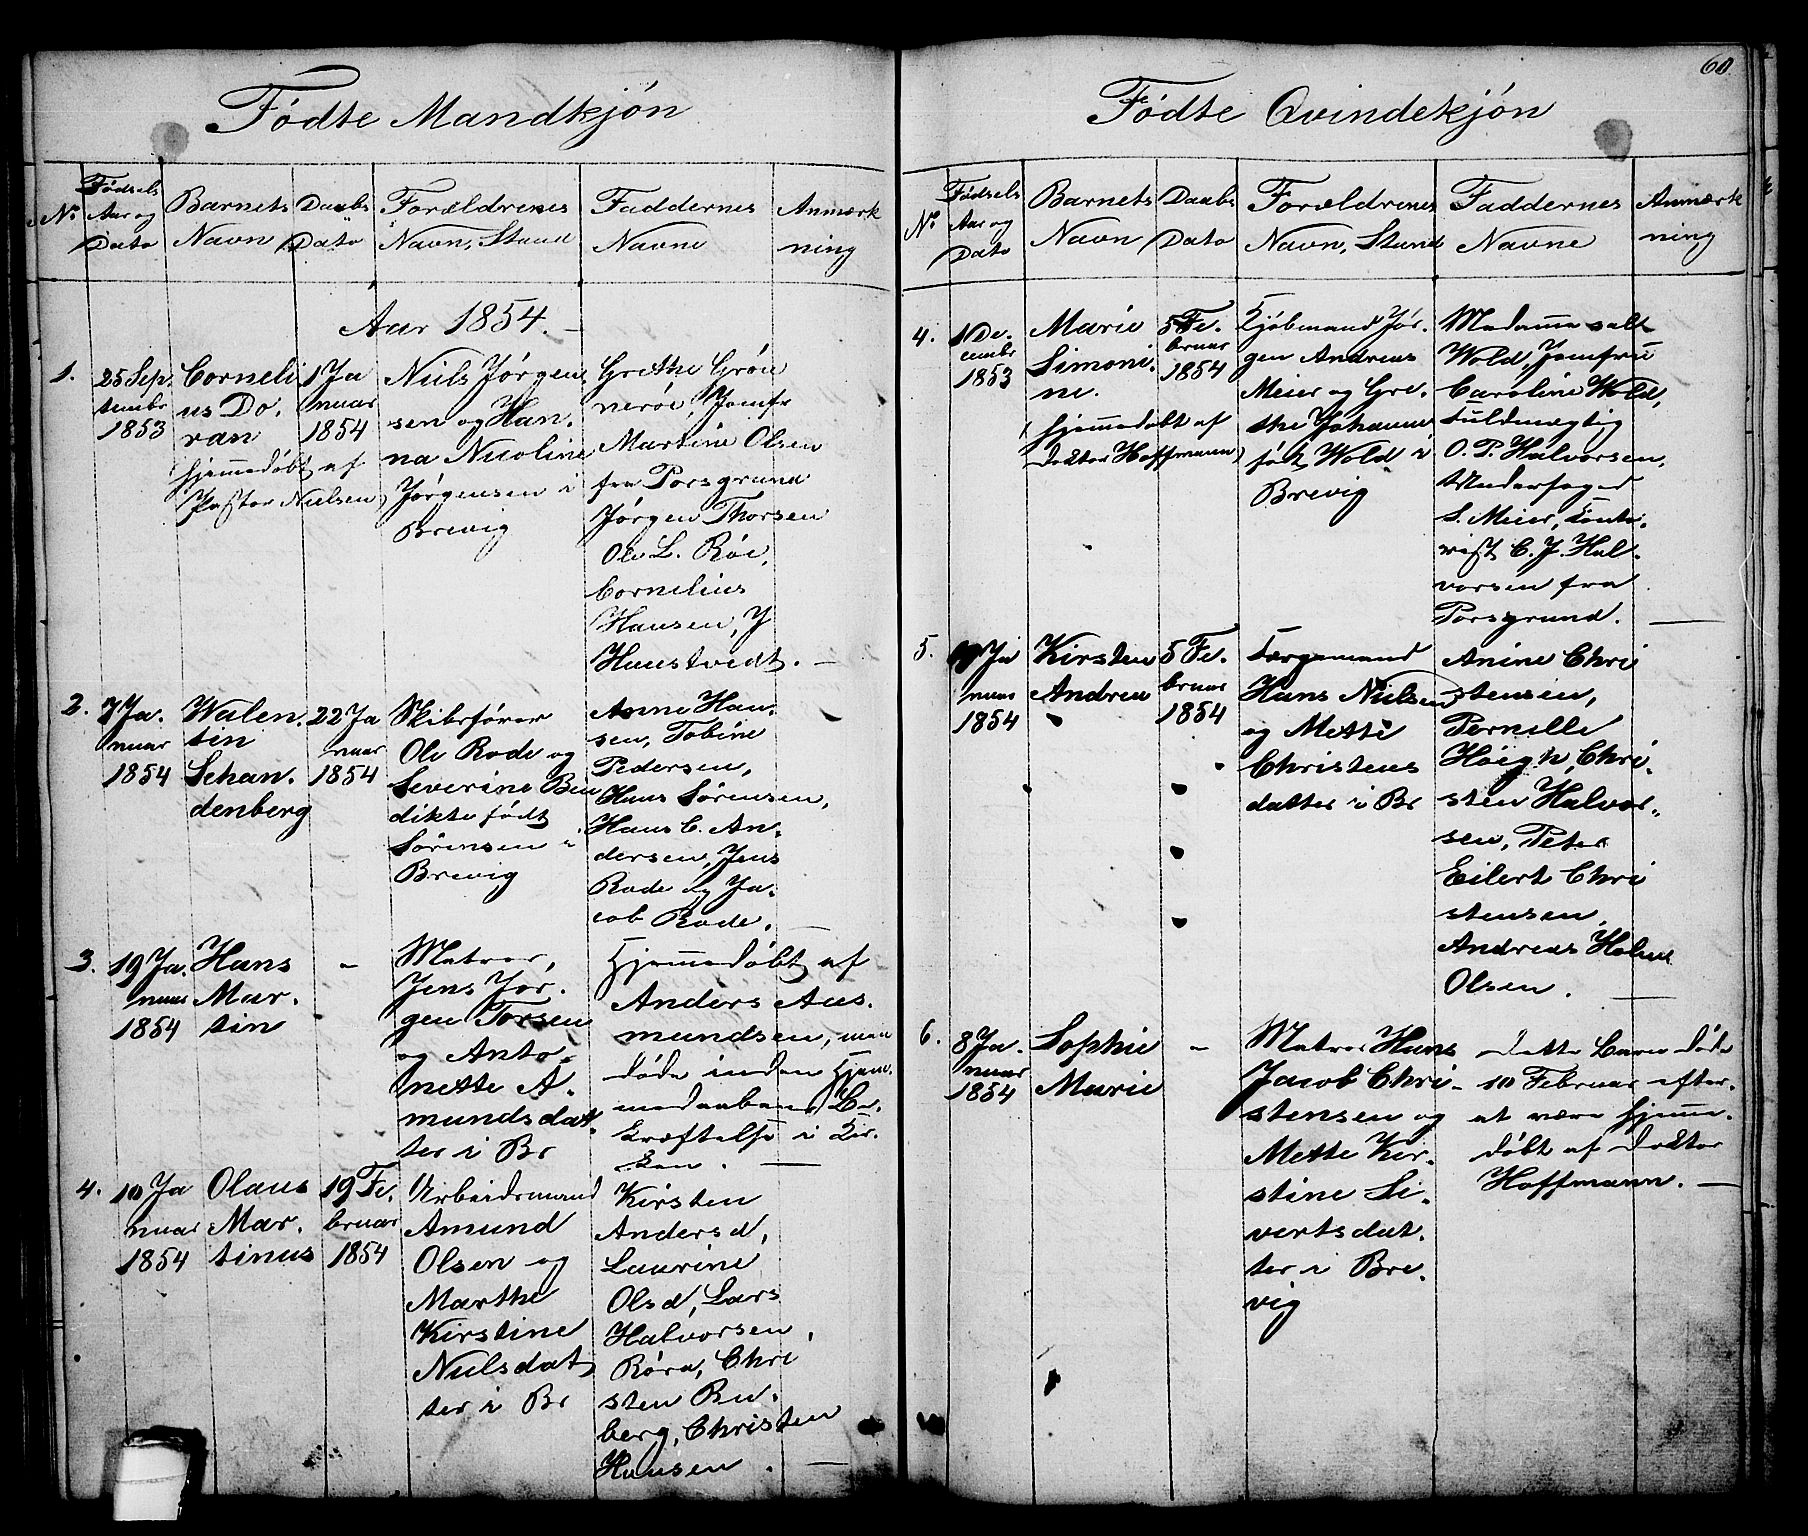 Fødte Mandkjøn
No
Fødsels Aar og Dato
Barnets Navn
Daabs Dato
Forældrenes Navn, Stand
Faddernes Navne
Anmærkning
Aar 1854. –
1.
25 Sep.
tembr
1853
Corneli
us Do.
ran
hjemmedøbt af
Pastor Nielsen)
1 Ja
nuar
1854
Niels Jørgen
sen og Han.
na Nicoline
Jørgensen i
Brevig
Grethe Grøn
nerøe, Jomfr
Martine Olsen
fra Porsgrund
Jørgen Thorsen
Ole L. Röe,
Cornelius
Hansen, J
Haustvedt. –
2.
7 Ja.
nuar
1854
Walen.
tin
Schan.
denberg
22 Ja
nuar
1854
Skibsfører
Ole Rode og
Severine Ben
dikte født
Sørensen i
Brevig
Anne Han
sen, Tobine
Pedersen,
Hans Sørensen,
Hans C. An.
dersen, Jens
Rode og Ja.
cob Rode. –
3.
19 Ja.
nuar
1854
Hans
Mar.
tin
–
Matros,
Jens Jør.
gen Torsen
og Anto.
nette A.
mundsdat.
ter i Br
Hjemmedøbt af
Anders Aas.
mundsen, men
døde inden Hjem.
medaabens Be.
kræftelse i Kir.
ken. –
4.
10 Ja
nuar
1854
Olaus
Mar.
tinus
19 Fe.
bruar
1854
Arbeidsmand
Amund
Olsen og
Marthe
Kirstine
Nielsdat
ter i Br
Kirsten
Andersd,
Laurine
Olsd, Lars
Halvorsen,
Röra, Chri
sten Ru.
berg, Christen
Hansen. –
60
Fødte Qvindekjøn
No
Fødsels Aar og Dato
Barnets Navn
Daabs Dato
Forældrenes Navn, Stand
Faddernes Navne
Anmærkning
4.
1 De.
cembr
1853
Marie
Simoni.
ne.
(hjemmedøbt af
Doktor Hoffmann)
5 Fe.
bruar
1854
Kjøbmand Jør.
gen Andreas
Meier og Gre.
the Johanne
født Wold i
Brevig
Madamme salt
Wold, Jomfru
Caroline Wold,
Fuldmægtig
O. P. Halvorsen,
Underfoged
S. Meier, Konto.
rist C. J. Hal.
vorsen fra
Porsgrund. –
5.
Ja
nuar
1854
Kirsten
Andrea
5 Fe.
bruar
1854
Færgemand
Hans Nielsen
og Mette
Christens
datter i Br
Anine Chri
stensen,
Pernille
Høigh, Chri.
sten Halvor.
sen, Peter
Eilert Chri
stensen,
Andreas Holm
Olsen. –
6.
8 Ja.
nuar
1854
Sophie
Marie
–
Matros Hans
Jacob Chri
stensen og
Mette Kir.
stine Si.
vertsdat.
ter i Bre.
vig
Dette Barn døde
10 Februar efter
at være hjemme.
døbt af Doktor
Hoffmann. –